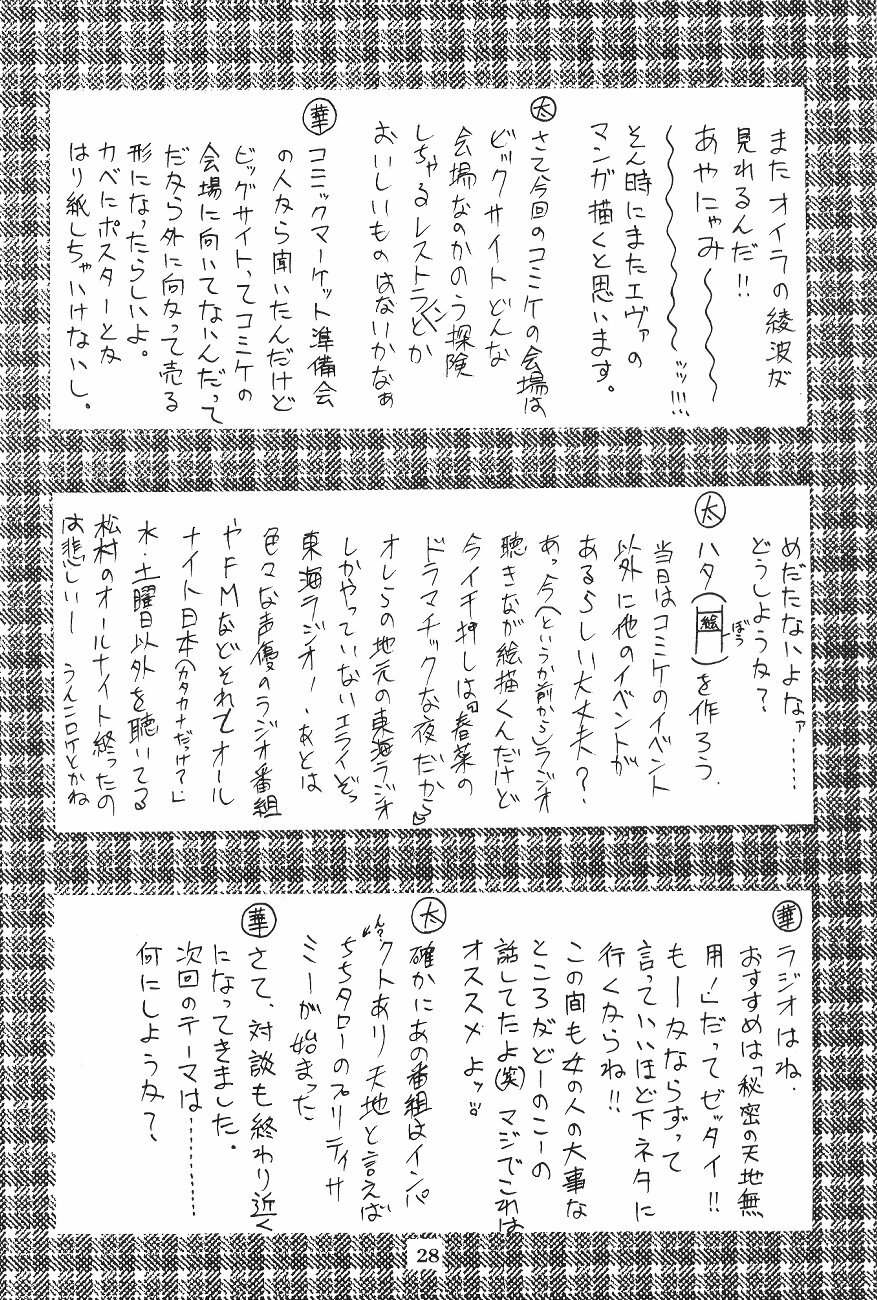 またオイラの綾波が
見れるんだ!!
あやにゃみ〜〜〜
〜〜〜〜〜〜ッッ!!!
そん時にまたエヴァの
マンガ描くと思います。
太 さて今回のコミケの会場は
ビックサイトどんな
会場なのかのう探険
しちゃるレストランとか
おいしいものはないかなぁ
華 コミックマーケット準備会
の人から聞いたんだけど
ビッグサイトってコミケの
会場に向いてないんだって
だから外に向かって売る
形になったらしいよ。
カベにポスターとか
はり紙しちゃいけないし。
めだたないよなァ……
どうしようか?
太 ハタ(絵 ぼう)を作ろう.
当日はコミケのイベント
以外に他のイベントが
あるらしい大丈夫?
あっ今(というか前から)ラジオ
聴きながら絵描くんだけど
今イチ押しは『春菜の
ドラマチックな夜だから』
オレらの地元の東海ラジオ
しかやっていないエライぞっ
東海ラジオ!.あとは
色々な声優のラジオ番組
やFMなどそれとオール
ナイト日本(カタカナだっけ?)
水・土曜日以外を聴いてる
松村のオールナイト終ったの
は悲しいー うんニロケとかね
華 ラジオはね.
おすすめは「秘密の天地無
用!」だってゼッタイ!!
もーかならずって
言っていいほど下ネタに
行くからね!!
この間も女の人の大事な
ところがどーのこーの
話してたよ(笑)マジでこれは
オススメよッ!!
太 確かにあの番組はインパ
クトあり天地と言えば
ちちタローのプリティサ
ミーが始まった
んっ?
華 さて、対談も終わり近く
になってきました。
次回のテーマは………
何にしようか?
28